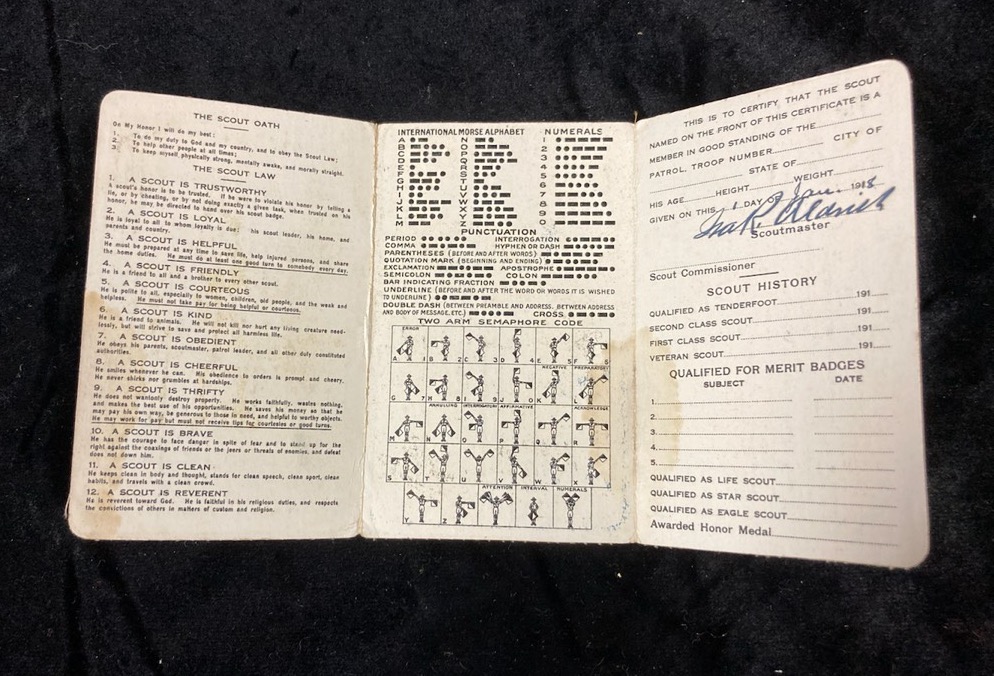 THE SCOUT OATH
On My Honor I will do my best:
1. To do my duty to God and my country, and to obey the Scout Law;
2. To help other people at all times;
3. To keep myself physically strong, mentally awake, and morally straight.
THE SCOUT LAW
1. A SCOUT IS TRUSTWORTHY
A scout's honor is to be trusted. If he were to violate his honor by telling a
lie, or by cheating, or by not doing exactly a given task, when trusted on his
honor, he may be directed to hand over his scout badge.
2. A SCOUT IS LOYAL
He is loyal to all to whom loyalty is due: his scout leader, his home, and
parents and country.
3. A SCOUT IS HELPFUL
He must be prepared at any time to save life, help injured persons, and share
the home duties. He must do at least one good turn to somebody every day.
4. A SCOUT IS FRIENDLY
He is a friend to all and a brother to every other scout.
5. A SCOUT IS COURTEOUS
He is polite to all, especially to women, children, old people, and the weak and
helpless. He must not take pay for being helpful or courteous.
6. A SCOUT IS KIND
He is a friend to animals. He will not kill nor hurt any living creature need-
lessly, but will strive to save and protect all harmless life.
7. A SCOUT IS OBEDIENT
He obeys his parents, scoutmaster, patrol leader, and all other duly constituted
authorities.
8. A SCOUT IS CHEERFUL
He smiles whenever he can. His obedience to orders is prompt and cheery.
He never shirks nor grumbles at hardships.
9. A SCOUT IS THRIFTY
He does not wantonly destroy property. He works faithfully, wastes nothing,
and makes the best use of his opportunities. He saves his money so that he
may pay his own way, be generous to those in need, and helpful to worthy objects.
He may work for pay but must not receive tips for courtesies or good turns.
10. A SCOUT IS BRAVE
He has the courage to face danger in spite of fear and to stand up for the
right against the coaxings of friends or the jeers or threats of enemies, and defeat
does not down him.
11. A SCOUT IS CLEAN
He keeps clean in body and thought, stands for clean speech, clean sport, clean
habits, and travels with a clean crowd.
12. A SCOUT IS REVERENT
He is reverent toward God. He is faithful in his religious duties, and respects
the convictions of others in matters of custom and religion.
INTERNATIONAL MORSE ALPHABET NUMERALS
A N 1
B O 2
C P 3
D Q 4
E R 5
F S 6
G T 7
H U 8
I V 9
J W 0
K X
L Y
M Z
PUNCTUATION
PERIOD INTERROGATION
COMMA HYPHEN OR DASH
PARENTHESES (BEFORE AND AFTER WORDS)
QUOTATION MARK (BEGINNING AND ENDING)
EXCLAMATION APOSTROPHE
SEMICOLON COLON
BAR INDICATING FRACTION
UNDERLINE (BEFORE AND AFTER THE WORD OR WORDS IT IS WISHED
TO UNDERLINE)
DOUBLE DASH (BETWEEN PREAMBLE AND ADDRESS, BETWEEN ADDRESS
AND BODY OF MESSAGE, ETC.) CROSS
TWO ARM SEMAPHORE CODE
ERROR
A 1 B 2 C 3 D 4 E 5 F 6
NEGATIVE PREPARATORY
G 7 H 8 I 9 J O K L
ANNULLING INTERROGATORY AFFIRMATIVE ACKNOWLEDGE
M N O P Q R
S T U V W X
ATTENTION INTERVAL NUMERALS
Y Z
THIS IS TO CERTIFY THAT THE SCOUT
NAMED ON THE FRONT OF THIS CERTIFICATE IS A
MEMBER IN GOOD STANDING OF THE
PATROL, TROOP NUMBER CITY OF
STATE OF
HIS AGE HEIGHT WEIGHT
GIVEN ON THIS 1 DAY OF Jan. 1918
Ira R. Aldrich
Scoutmaster
Scout Commissioner
SCOUT HISTORY
QUALIFIED AS TENDERFOOT 191
SECOND CLASS SCOUT 191
FIRST CLASS SCOUT 191
VETERAN SCOUT 191
QUALIFIED FOR MERIT BADGES
SUBJECT DATE
1.
2.
3.
4.
5.
QUALIFIED AS LIFE SCOUT
QUALIFIED AS STAR SCOUT
QUALIFIED AS EAGLE SCOUT
Awarded Honor Medal